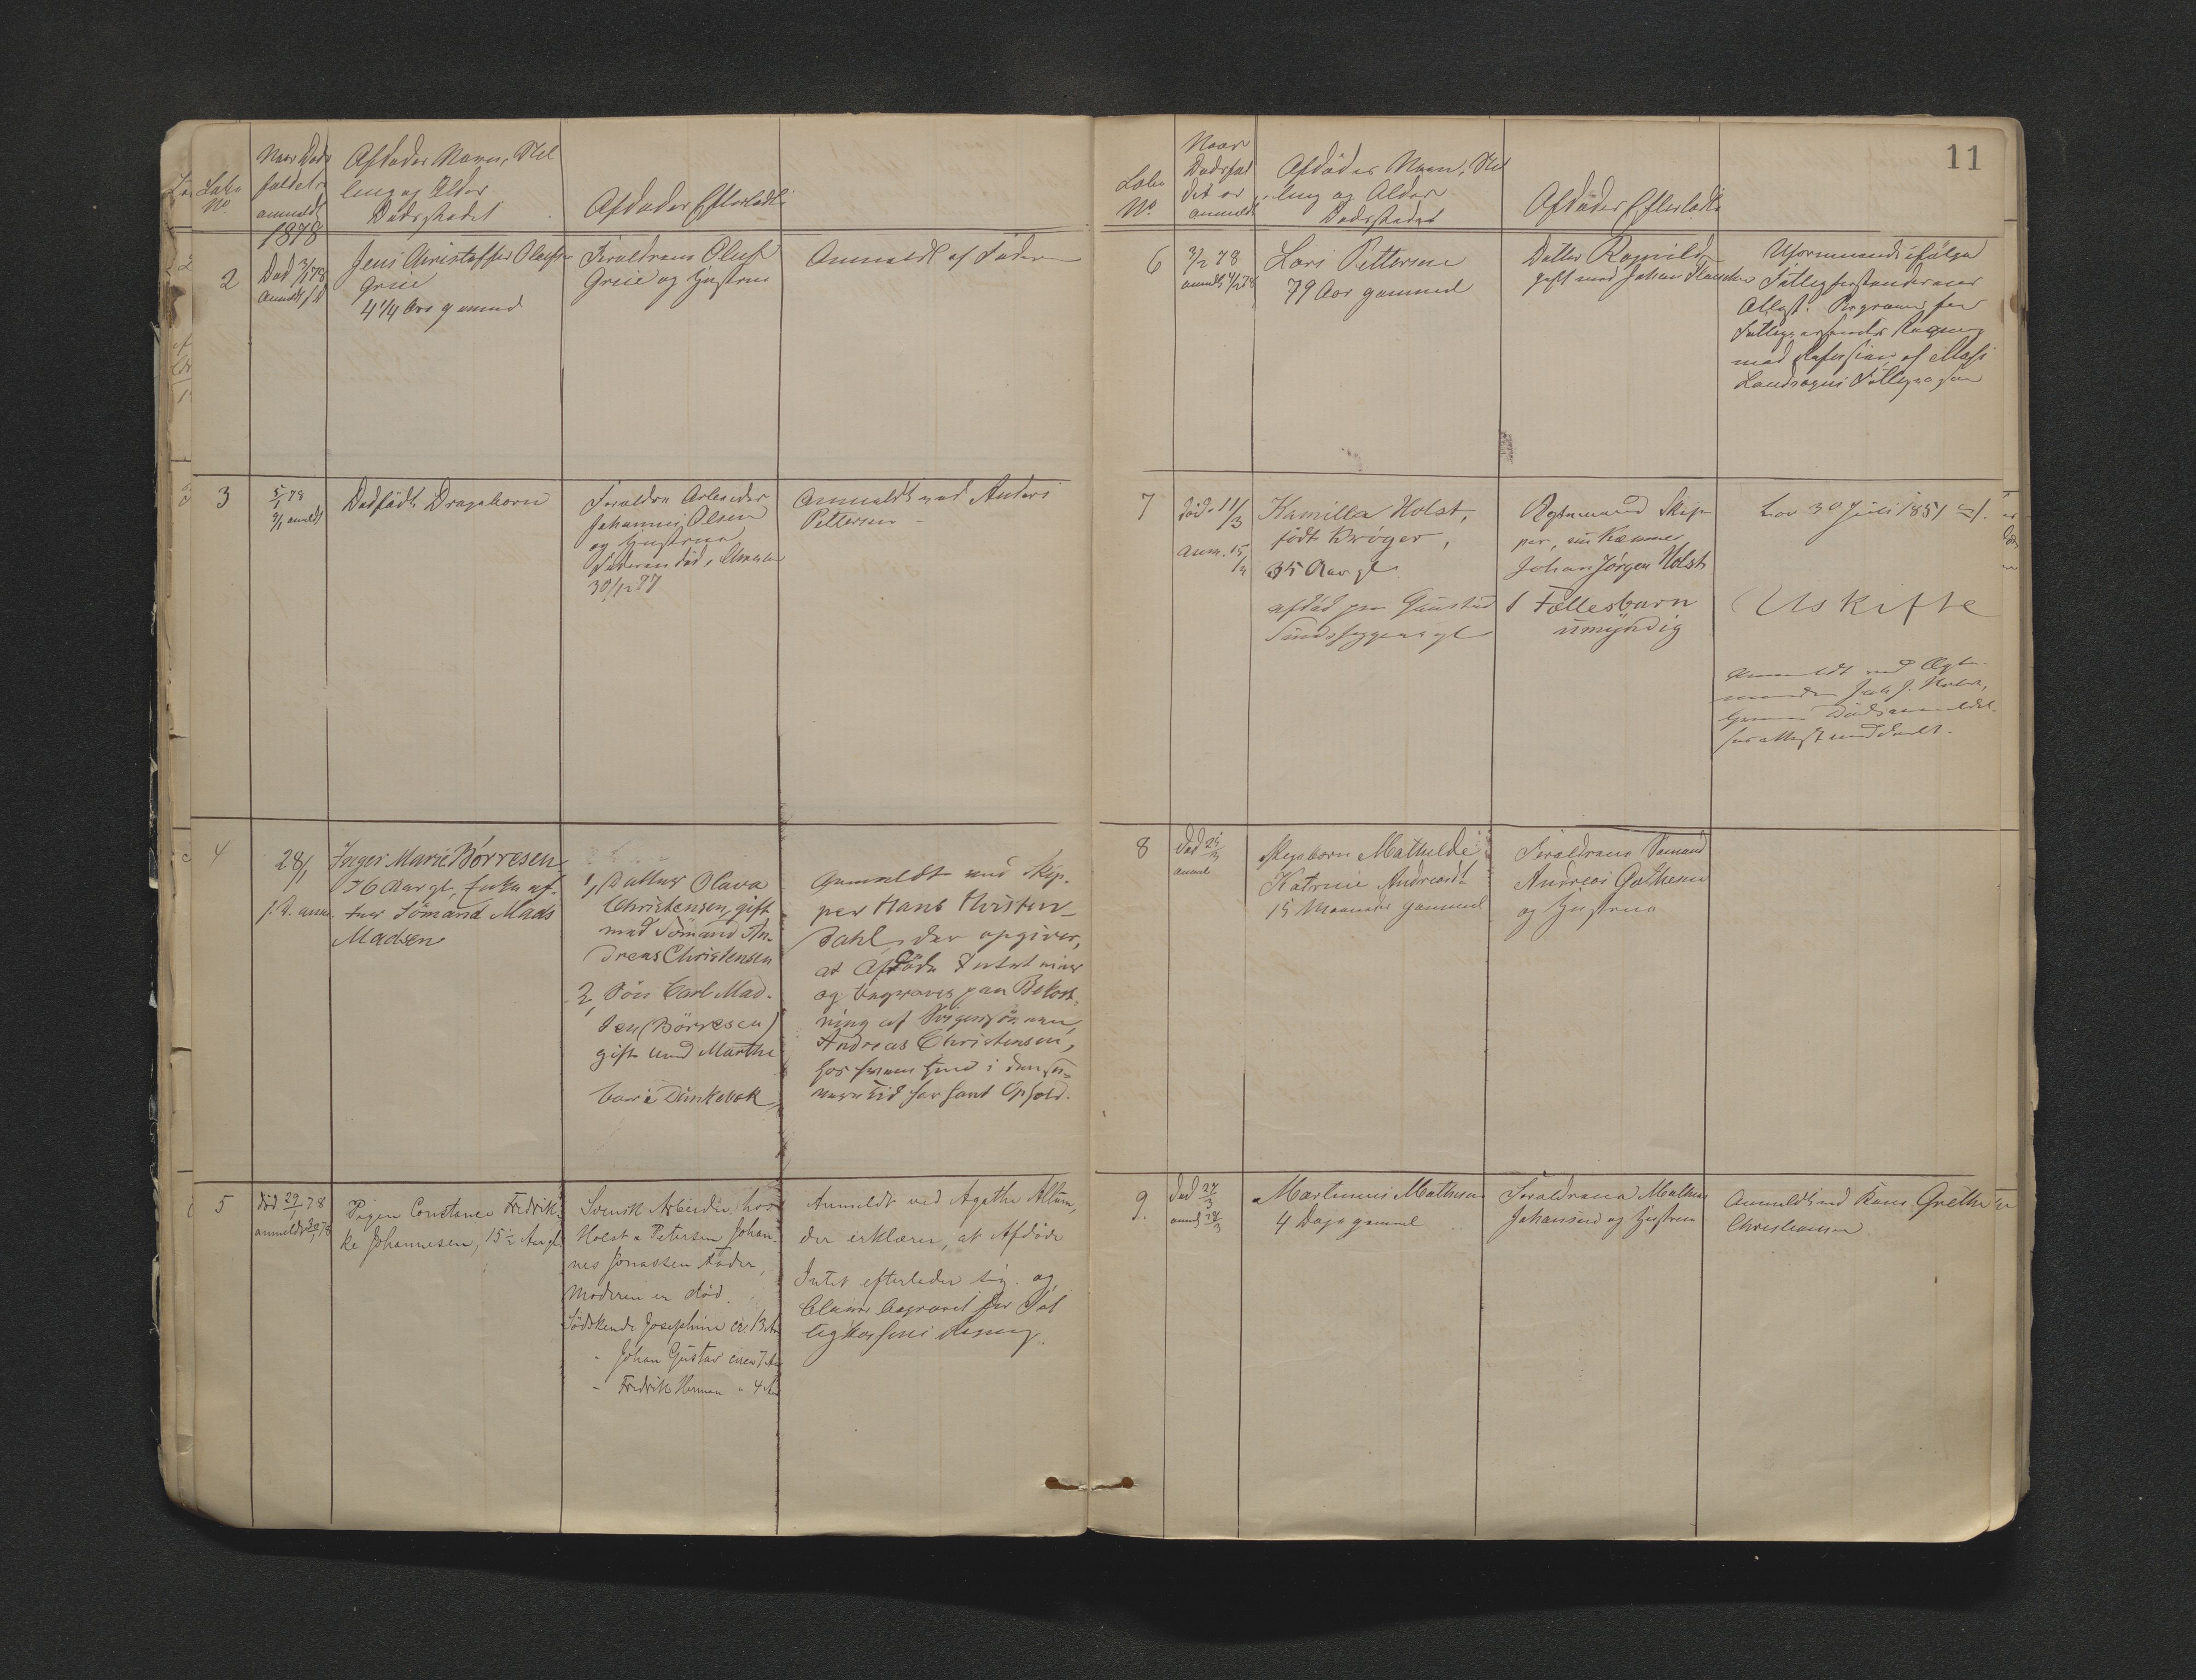 Løbe
No.
Naar Døds
faldet er
anmeldt
Afdødes Navn, Stil
ling og Alder
Dødsstedet
Afdødes Efterladte
1878
2
Død 3/1 78
anmeldt s. D.
Jens Christoffer Olufsen
Griie
4 1/4 Aar gammel
Forældrene Oluf
Griie og Hustru
Anmeldt af Faderen
3
5/1 78
9/1 anmeldt
Dødfødt Drengebarn
Forældre Arbeider
Johannes Olsen
og Hustru
Faderen død
30/12 77
Anmeldt ved Anders
Pettersen
4
28/1
s. D. anm.
Inger Marie Børresen
76 Aar gl, Enke ef-
ter Sömand Mads
Madsen
1, Datter Olava
Christensen, gift
med Sömand An-
dreas Christensen
2, Sön Carl Mad-
sen (Börresen)
gift med Marthe
bor i Dünkebæk
Anmeldt ved Skip-
per Hans Thisten-
dahl, der opgiver,
at Afdöde Intet eier
og begraves paa Bekost-
ning af Svigersönnen,
Andreas Christensen,
hos hvem hun i den se-
nere Tid har havt Ophold.
5
död 29/1 78
anmeldt 30/1 78
Pigen Constance Fredrik-
ke Johannesen, 15 1/2 Aar gl.
Svensk Arbeider hos
Holst & Petersen Johan-
nes Jonassen Fader,
Moderen er död.
Södskende Josephine ca. 13 Aar
" Johan Gustav circa 7 Aar
" Fredrik Herman " 4 Aar
Anmeldt ved Agathe Altum,
der erklærer, at Afdöde
Intet efterlader sig og
bliver begravet for Fat
tigkassens Regning.
11
Løbe
No.
Naar
Dødsfal
det er
anmeldt
Afdødes Navn, Stil
ling og Alder
Dødsstedet
Afdødes Efterladte
6
3/2 78
anmeldt 4/2 78
Lars Pettersen
79 Aar gammel
Datter Ragnild
gift med Johan
Uformuende ifølge
Fattigforstandernes
Attest. Begraves for
Fattigvæsenets Regning
med Refusion af
Landsogns Fattigvæsen
7
död 11/3
Anm. 15/4
Kamilla Holst,
födt Kröger,
35 Aar gl
afdöd paa Gaustad
Sindssygeasyl
Ægtemand Skip-
per, nu Kæmner
Johan Jörgen Holst
1 Fællesbarn
umyndig
Lov 30 Juli 1851
Uskifte
Anmeldt ved Ægte-
manden Joh. J. Holst,
Dödsanmeldel-
sesattest meddelt.
8
Død 25/3
anmeldt
Pigebarn Mathilde
Katrine Andreasdt
15 Maaneder gammel
Forældrene Sømand
Andreas Mathesen
og Hustru
9.
Død 27/3
anmeldt 28/3
Martinus Mathesen
4 Dage gammel
Forældrene Mathias
Johansen og Hustru
Anmeldt ved Kone Grethe
Christiansen